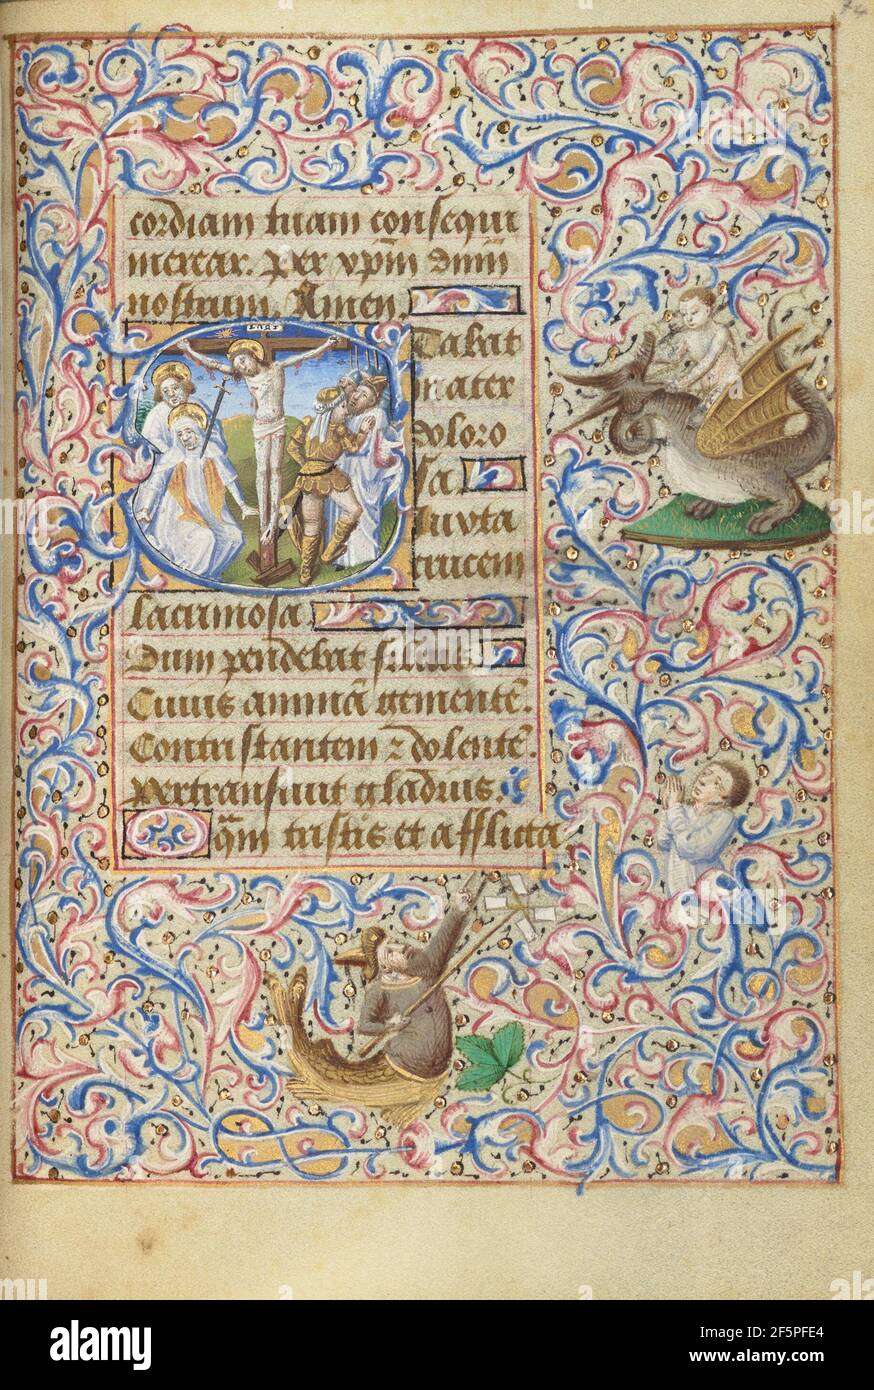 74
cordiam tuam consequi
merear. Per xp̄m dn̄m
nostrum. Amen.
INRI
Tabat
mater
doloro
sa.
Iuxta
crucem
lacrimosa.
Dum pendebat filius
Cuius animā gementē.
Contristantem ⁊ dolentē.
pertransiuit gladius.
Qm̄ tristis et afflicta.
alamy
Image ID: 2F5PFE4
www.alamy.com